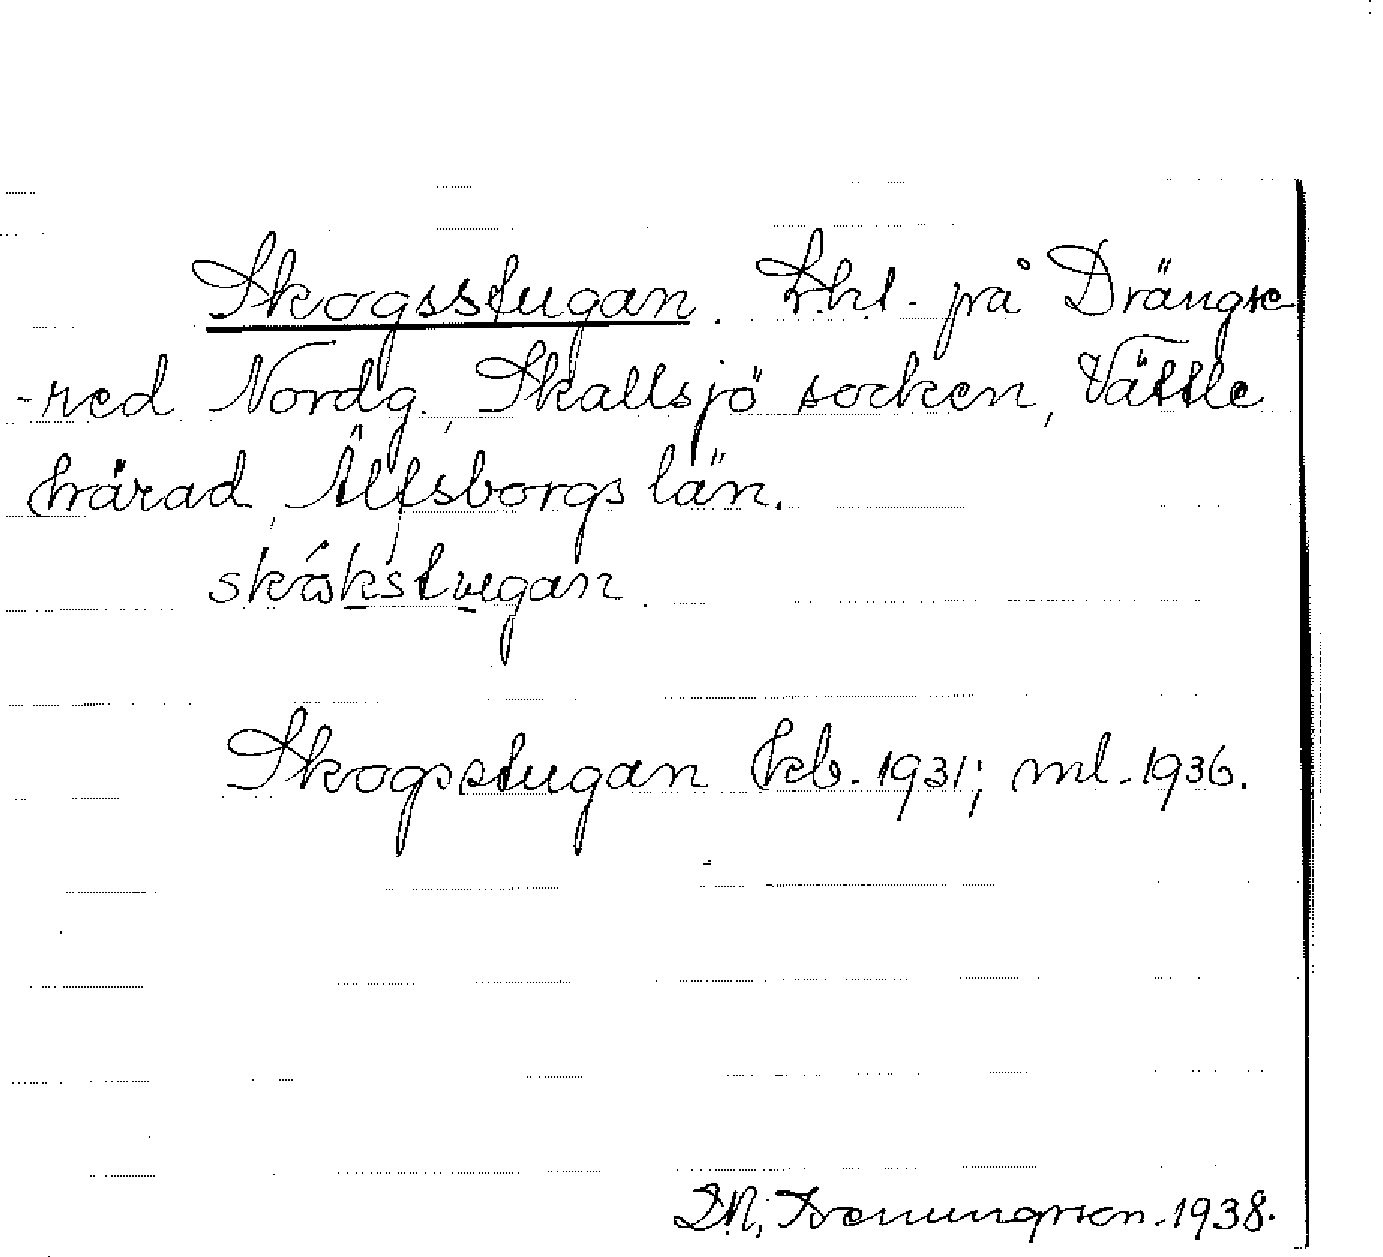 Skogsstugan. Lht. på Drängse
-red Nordg., Skallsjö socken, Vättle
härad, Älfsborgs län.
skåkstugan.
Skogsstugan kb. 1931; ml. 1936.
1938.